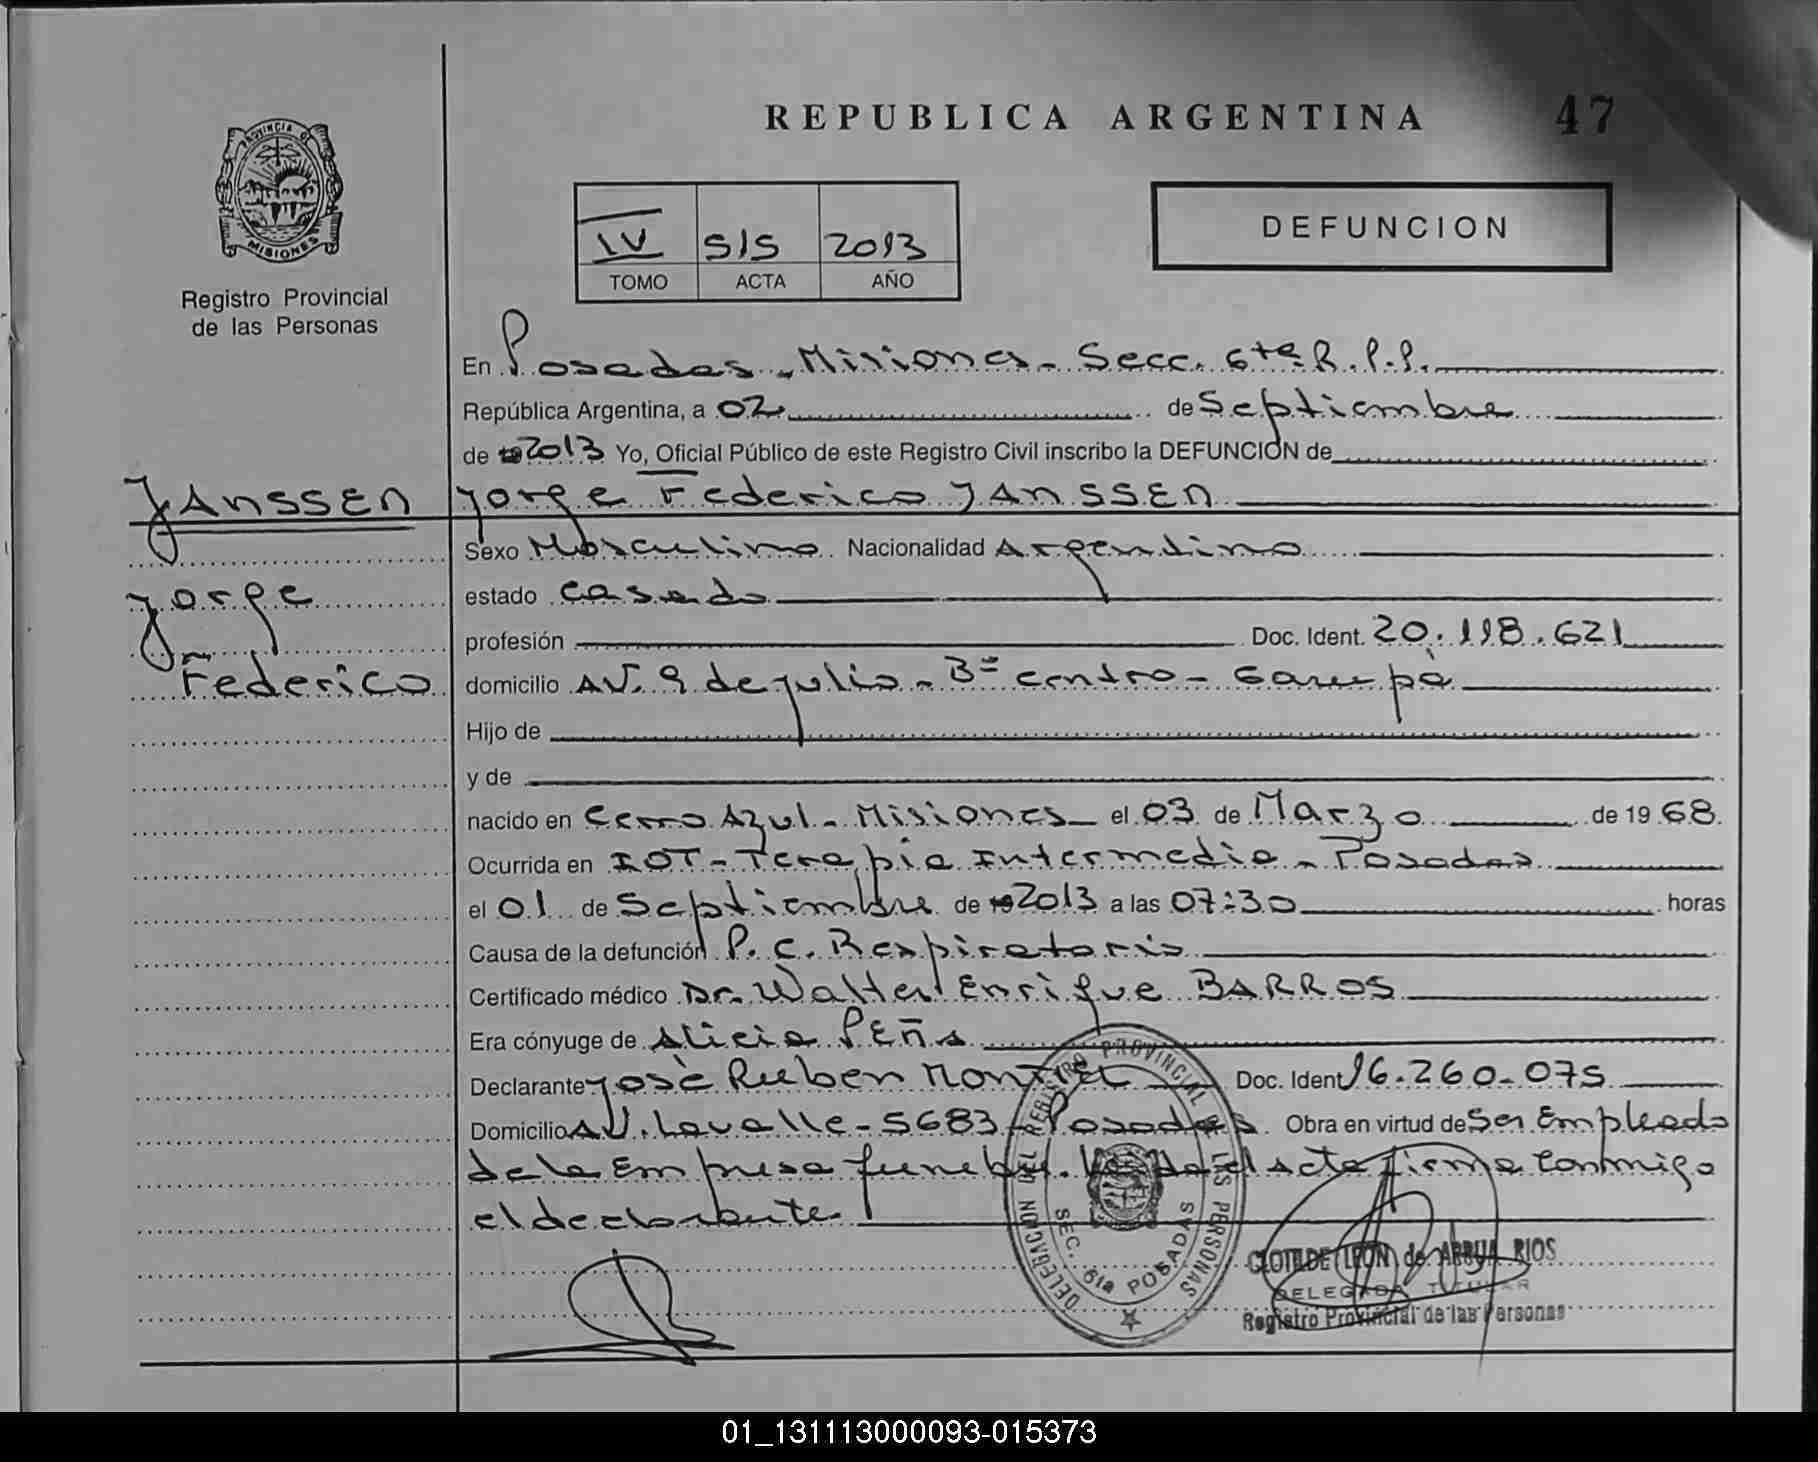 REPUBLICA ARGENTINA 47
PROVINCIA DE MISIONES
Registro Provincial
de las Personas
IV 515 2013
TOMO ACTA AÑO
DEFUNCION
En Posadas - Misiones - Secc. 6ta R.P.P.
República Argentina, a 02 de Septiembre
de 2013 Yo, Oficial Público de este Registro Civil inscribo la DEFUNCION de
JANSSEN
Jorge
Federico
Jorge Federico JANSSEN
Sexo Masculino Nacionalidad Argentino
estado Casado
profesión Doc. Ident. 20.118.621
domicilio AV. 9 de julio - Bº centro - Garupá
Hijo de
y de
nacido en Cerro Azul - Misiones el 03 de Marzo de 19 68
Ocurrida en IOT - Terapia Intermedia - Posadas
el 01 de Septiembre de 2013 a las 07:30 horas
Causa de la defunción P. C. Respiratorio
Certificado médico Dr. Walter Enrique BARROS
Era cónyuge de Alicia PEÑA
Declarante José Ruben Doc. Ident 16.260.075
Domicilio AV. Lavalle - 5683 - Posadas. Obra en virtud de Ser Empleado
de la Empresa funebre. Leida el Acta firma Conmigo
el declarante
DELEGACION DEL REGISTRO PROVINCIAL DE LAS PERSONAS
SEC. 6ta POSADAS
CLOTILDE LEON de ARRUA RIOS
DELEGADA TITULAR
Registro Provincial de las Personas
01_131113000093-015373